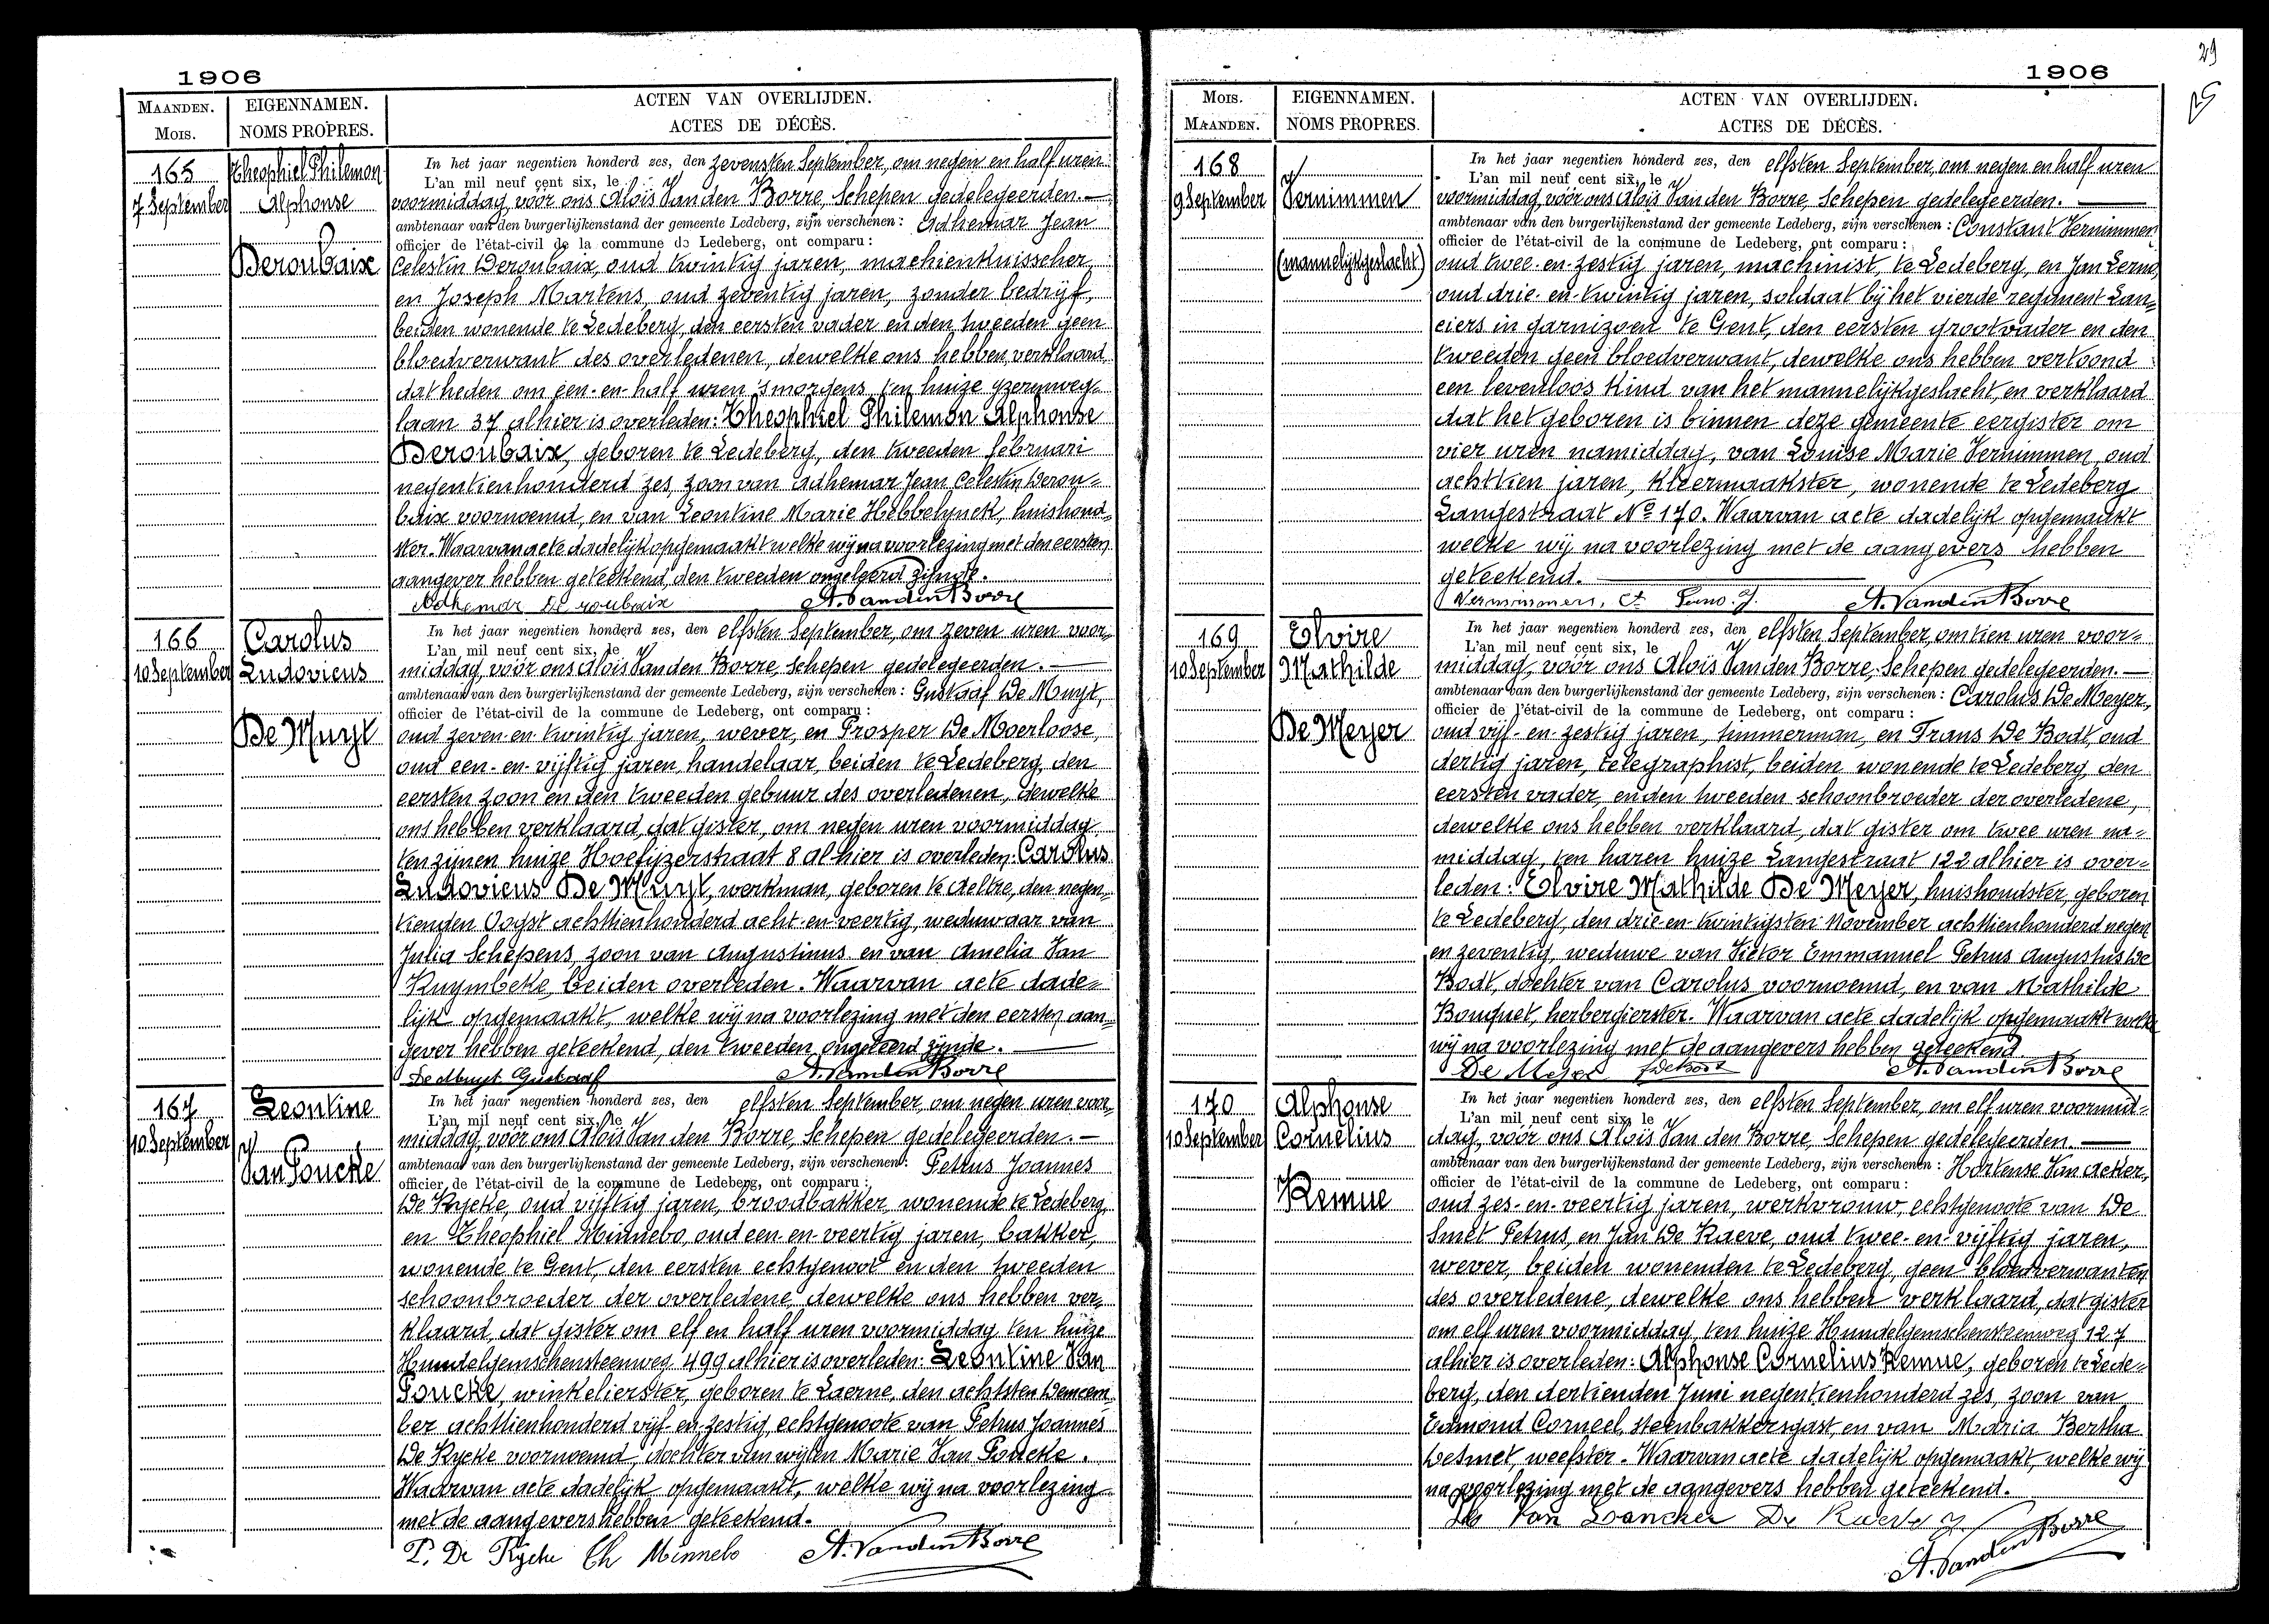 1906
MAANDEN.
Mois.
EIGENNAMEN.
NOMS PROPRES.
ACTEN VAN OVERLIJDEN.
ACTES DE DÉCÈS.
165
7 September
Theophiel Philemon
Alphonse
Deroubaix
In het jaar negentien honderd zes, den zevensten September, om negen en half uren
L'an mil neuf cent six, le
voormiddag, voor ons Aloïs Van den Borre, Schepen gedelegeerden.
ambtenaar van den burgerlijkenstand der gemeente Ledeberg, zijn verschenen: Adhemar Jean
officier de l'état-civil de la commune de Ledeberg, ont comparu:
Celestin Deroubaix, oud twintig jaren, machienkuisscher,
en Joseph Martens, oud zeventig jaren, zonder bedrijf,
beiden wonende te Ledeberg, den eersten vader en den tweeden geen
bloedverwant des overledenen, dewelke ons hebben verklaard,
dat heden om een-en-half uren 'smorgens, ten huize yzerenweg-
laan 37 alhier is overleden: Theophiel Philemon Alphonse
Deroubaix, geboren te Ledeberg, den tweeden februari
negentienhonderd zes, zoon van Adhemar Jean Celestin Derou-
baix voornoemd, en van Leontine Marie Hebbelynck, huishoud-
ster. Waarvan acte dadelijk opgemaakt welke wij na voorlezing met den eersten
aangever hebben geteekend, den tweeden ongeleerd zijnde.
Adhemar De roubaix A. Vanden Borre
166
10 September
Carolus
Ludovicus
De Muyt
In het jaar negentien honderd zes, den elfsten September, om zeven uren voor-
L'an mil neuf cent six, le
middag, vóór ons Aloïs Van den Borre, Schepen gedelegeerden.
ambtenaar van den burgerlijkenstand der gemeente Ledeberg, zijn verschenen: Gustaaf De Muyt,
officier de l'état-civil de la commune de Ledeberg, ont comparu:
oud zeven-en-twintig jaren, wever, en Prosper De Moerloose,
oud een-en-vijftig jaren, handelaar, beiden te Ledeberg, den
eersten zoon en den tweeden gebuur des overledenen, dewelke
ons hebben verklaard, dat gister, om negen uren voormiddag
ten zijnen huize Hoefijzerstraat 8 alhier is overleden: Carolus
Ludovicus De Muyt, werkman, geboren te Aeltre, den negen-
tienden Oogst achttienhonderd acht-en-veertig, weduwaar van
Julia Schepens, zoon van Augustinus en van Amelia Van
Kuymbeke, beiden overleden. Waarvan acte dade-
lijk opgemaakt, welke wij na voorlezing met den eersten aan-
gever hebben geteekend, den tweeden ongeleerd zijnde.
De Muyt Gustaaf A. Vanden Borre
167
10 September
Leontine
Van Poucke
In het jaar negentien honderd zes, den elfsten September, om negen uren voor-
L'an mil neuf cent six, le
middag, vóór ons Aloïs Van den Borre, Schepen gedelegeerden.
ambtenaar van den burgerlijkenstand der gemeente Ledeberg, zijn verschenen: Petrus Joannes
officier de l'état-civil de la commune de Ledeberg, ont comparu:
De Rycke, oud vijftig jaren, broodbakker, wonende te Ledeberg,
en Theophiel Minnebo, oud een-en-veertig jaren, bakker,
wonende te Gent, den eersten echtgenoot en den tweeden
schoonbroeder der overledene, dewelke ons hebben ver-
klaard, dat gister om elf en half uren voormiddag ten huize
Hundelgemschensteenweg 499 alhier is overleden: Leontine Van
Poucke, winkelierster, geboren te Laerne, den achtsten Decem-
ber achttienhonderd vijf-en-zestig, echtgenoote van Petrus Joannes
De Rycke voornoemd, dochter van wijlen Marie Van Poucke.
Waarvan acte dadelijk opgemaakt, welke wij na voorlezing
met de aangevers hebben geteekend.
P. De Rycke Th Minnebo A. Vanden Borre
29
1906
Mois.
MAANDEN.
EIGENNAMEN.
NOMS PROPRES.
ACTEN VAN OVERLIJDEN.
ACTES DE DÉCÈS.
168
9 September
Vernimmen
(mannelijkgeslacht)
In het jaar negentien honderd zes, den elfsten September, om negen en half uren
L'an mil neuf cent six, le
voormiddag, vóór ons Aloïs Van den Borre, Schepen gedelegeerden.
ambtenaar van den burgerlijkenstand der gemeente Ledeberg, zijn verschenen: Constant Vernimmen
officier de l'état-civil de la commune de Ledeberg, ont comparu:
oud twee-en-zestig jaren, machinist, te Ledeberg, en Jan
oud drie-en-twintig jaren, soldaat bij het vierde regiment Lan-
ciers in garnizoen te Gent, den eersten grootvader en den
tweeden geen bloedverwant, dewelke ons hebben vertoond
een levenloos kind van het mannelijkgeslacht, en verklaard
dat het geboren is binnen deze gemeente eergister om
vier uren namiddag, van Louise Marie Vernimmen, oud
achttien jaren, kleermaakster, wonende te Ledeberg
Langestraat No 170. Waarvan acte dadelijk opgemaakt
welke wij na voorlezing met de aangevers hebben
geteekend.
A. Vanden Borre
169
10 September
Elvire
Mathilde
De Meyer
In het jaar negentien honderd zes, den elfsten September, om tien uren voor-
L'an mil neuf cent six, le
middag, vóór ons Aloïs Van den Borre, Schepen gedelegeerden.
ambtenaar van den burgerlijkenstand der gemeente Ledeberg, zijn verschenen: Carolus De Meyer,
officier de l'état-civil de la commune de Ledeberg, ont comparu:
oud vijf-en-zestig jaren, timmerman, en Frans De Bodt, oud
dertig jaren, telegraphist, beiden wonende te Ledeberg, den
eersten vader, en den tweeden schoonbroeder der overledene,
dewelke ons hebben verklaard, dat gister om twee uren na-
middag, ten haren huize Langestraat 122 alhier is over-
leden: Elvire Mathilde De Meyer, huishoudster, geboren
te Ledeberg, den drie-en-twintigsten November achttienhonderd negen
en zeventig, weduwe van Victor Emmanuel Petrus Augustus De
Bodt, dochter van Carolus voornoemd, en van Mathilde
Bouquet, herbergierster. Waarvan acte dadelijk opgemaakt welke
wij na voorlezing met de aangevers hebben geteekend.
De Meyer A. Vanden Borre
170
10 September
Alphonse
Cornelius
Remue
In het jaar negentien honderd zes, den elfsten September, om elf uren voormid-
L'an mil neuf cent six, le
dag, vóór ons Aloïs Van den Borre, Schepen gedelegeerden.
ambtenaar van den burgerlijkenstand der gemeente Ledeberg, zijn verschenen: Hortense Van Acker,
officier de l'état-civil de la commune de Ledeberg, ont comparu:
oud zes-en-veertig jaren, werkvrouw, echtgenoote van De
Smet Petrus, en Jan De Raeve, oud twee-en-vijftig jaren,
wever, beiden wonenden te Ledeberg, geen bloedverwanten
des overledene, dewelke ons hebben verklaard, dat gister
om elf uren voormiddag, ten huize Hundelgemschensteenweg 127
alhier is overleden: Alphonse Cornelius Remue, geboren te Lede-
berg, den dertienden Juni negentienhonderd zes, zoon van
Edmond Corneel, steenbakkersgast, en van Maria Bertha
Desmet, weefster. Waarvan acte dadelijk opgemaakt, welke wij
na voorlezing met de aangevers hebben geteekend.
A. Vanden Borre